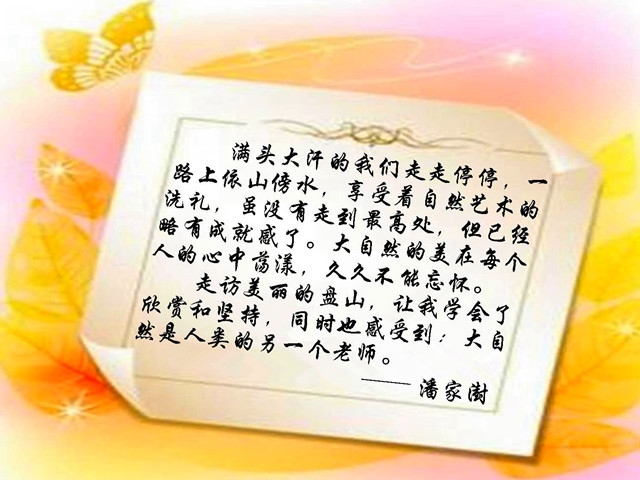 满头大汗的我们走走停停，一
路上依山傍水，享受着自然艺术的
洗礼，虽没有走到最高处，但已经
略有成就感了。大自然的美在每个
人的心中荡漾，久久不能忘怀。
走访美丽的盘山，让我学会了
欣赏和坚持，同时也感受到：大自
然是人类的另一个老师。
—— 潘家澍